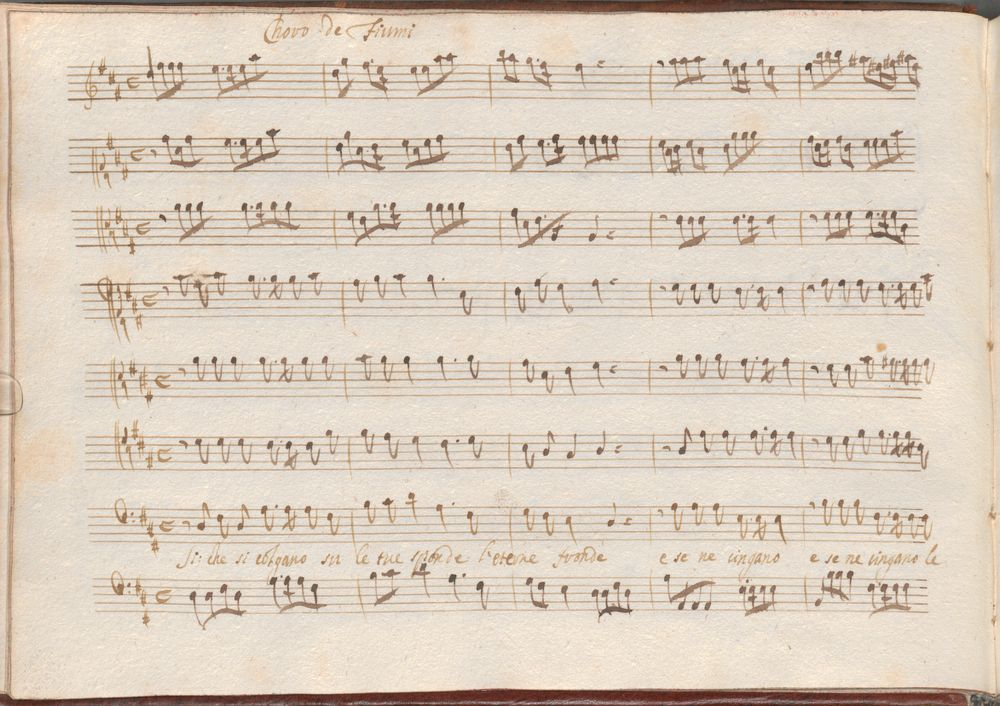 Choro de Fiumi
Si che si colgano su le tue sponde l'eterne fronde e se ne cingano e se ne cingano le